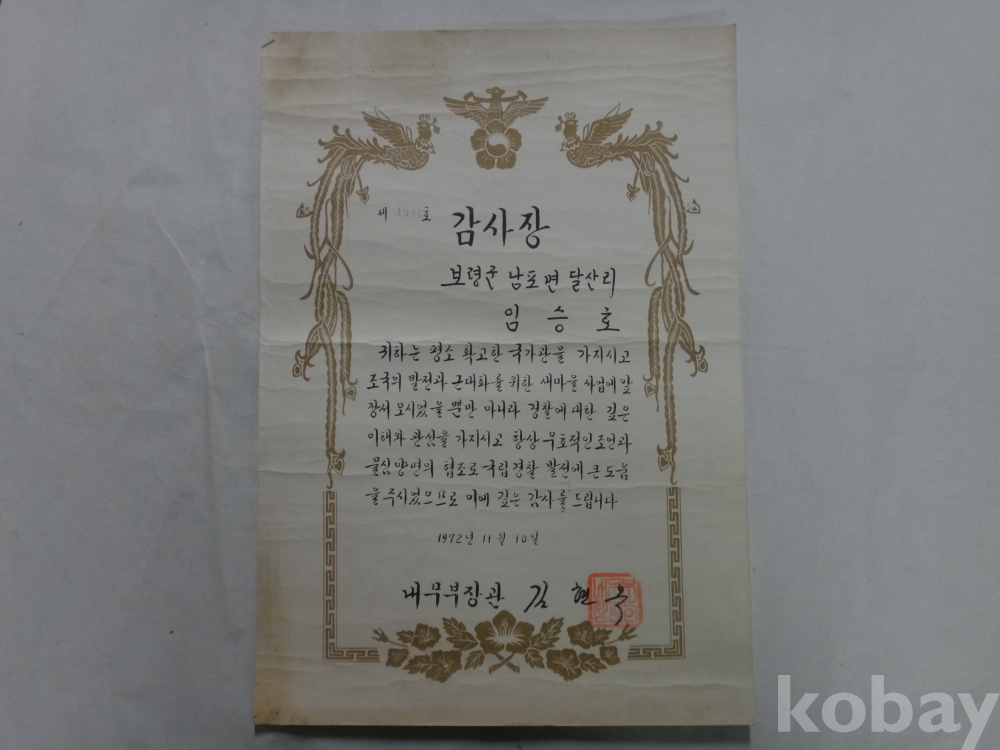 제 호
감사장
보령군 남포면 달산리
임 승 호
귀하는 평소 확고한 국가관을 가지시고
조국의 발전과 근대화를 위한 새마을 사업에 앞
장서 오시었을 뿐만 아니라 경찰에 대한 깊은
이해와 관심을 가지시고 항상 우호적인 조언과
물심양면의 협조로 국립경찰 발전에 큰 도움
을 주시었으므로 이에 깊은 감사를 드립니다
1972년 11월 10일
내무부장관 김 현 옥
kobay